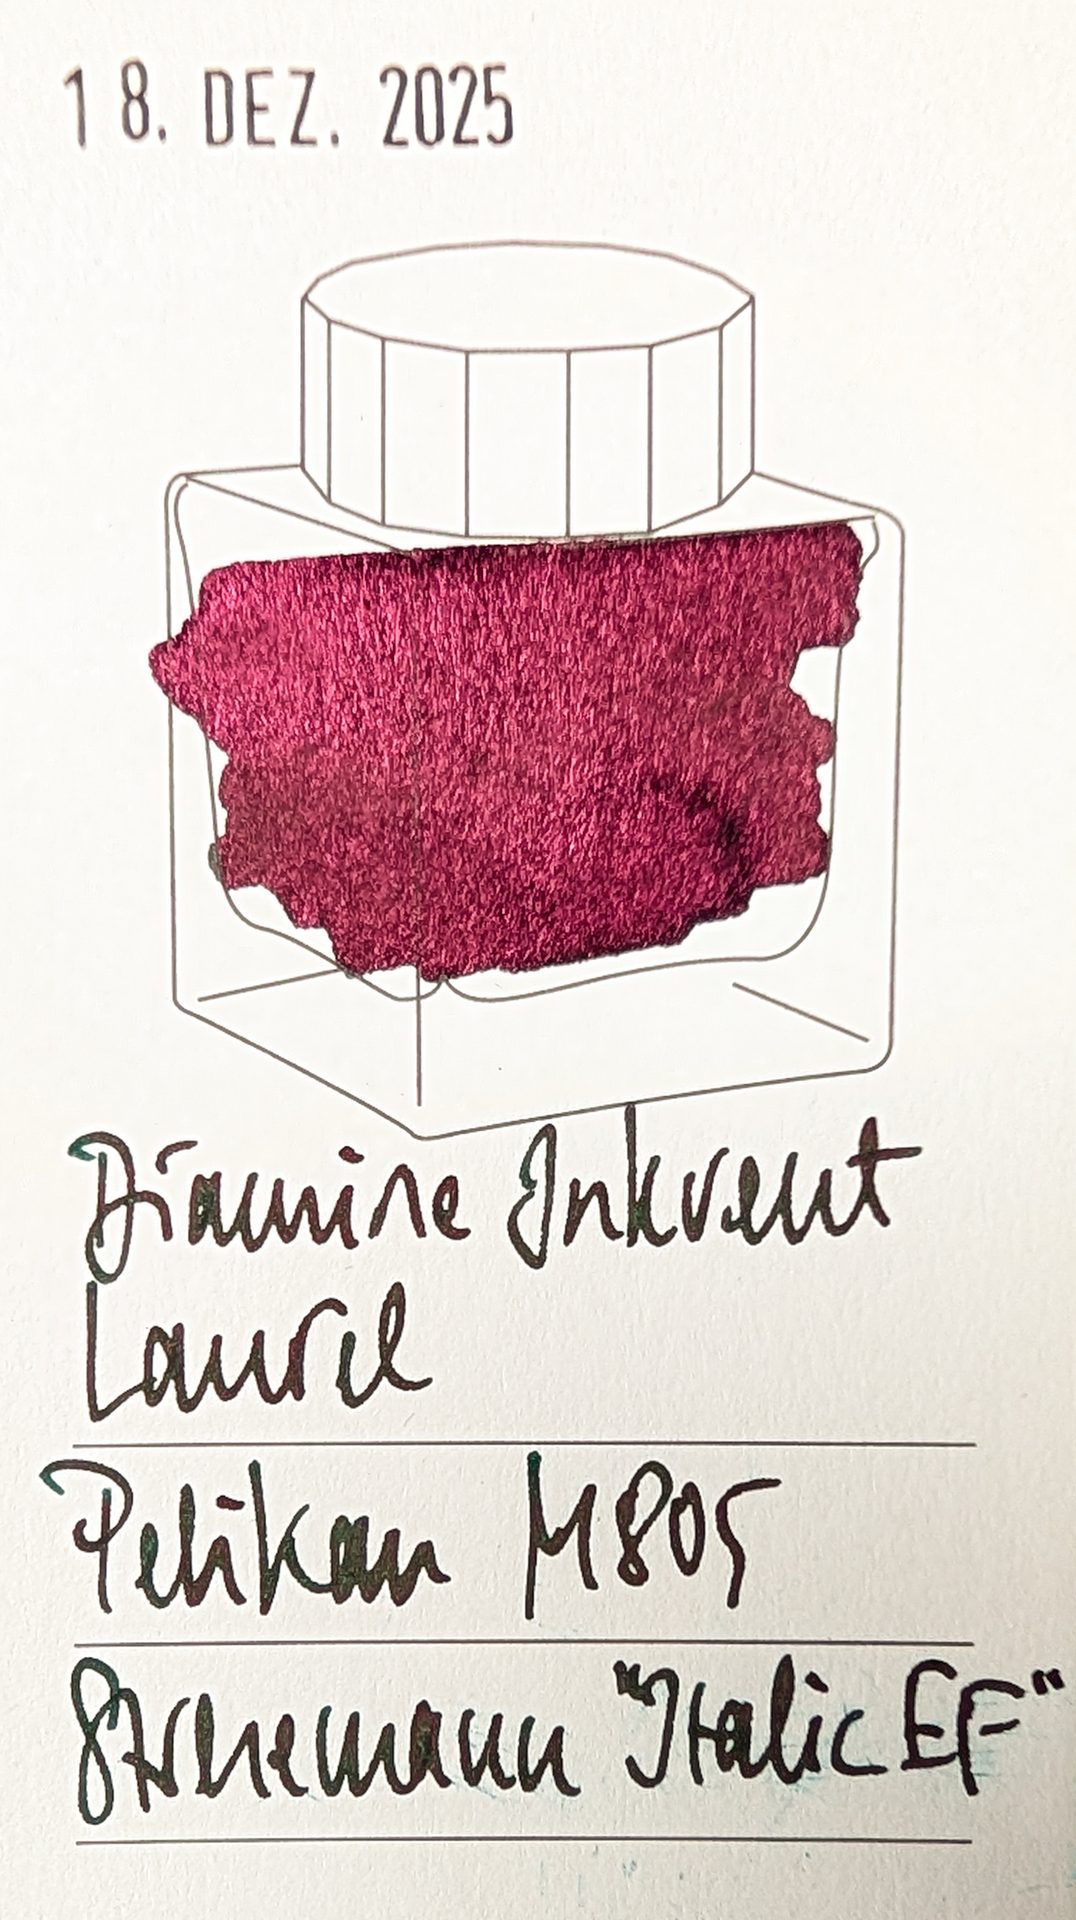 18. DEZ. 2025
Diamine Inkvent
Laurel
Pelikan M805
"Italic EF"